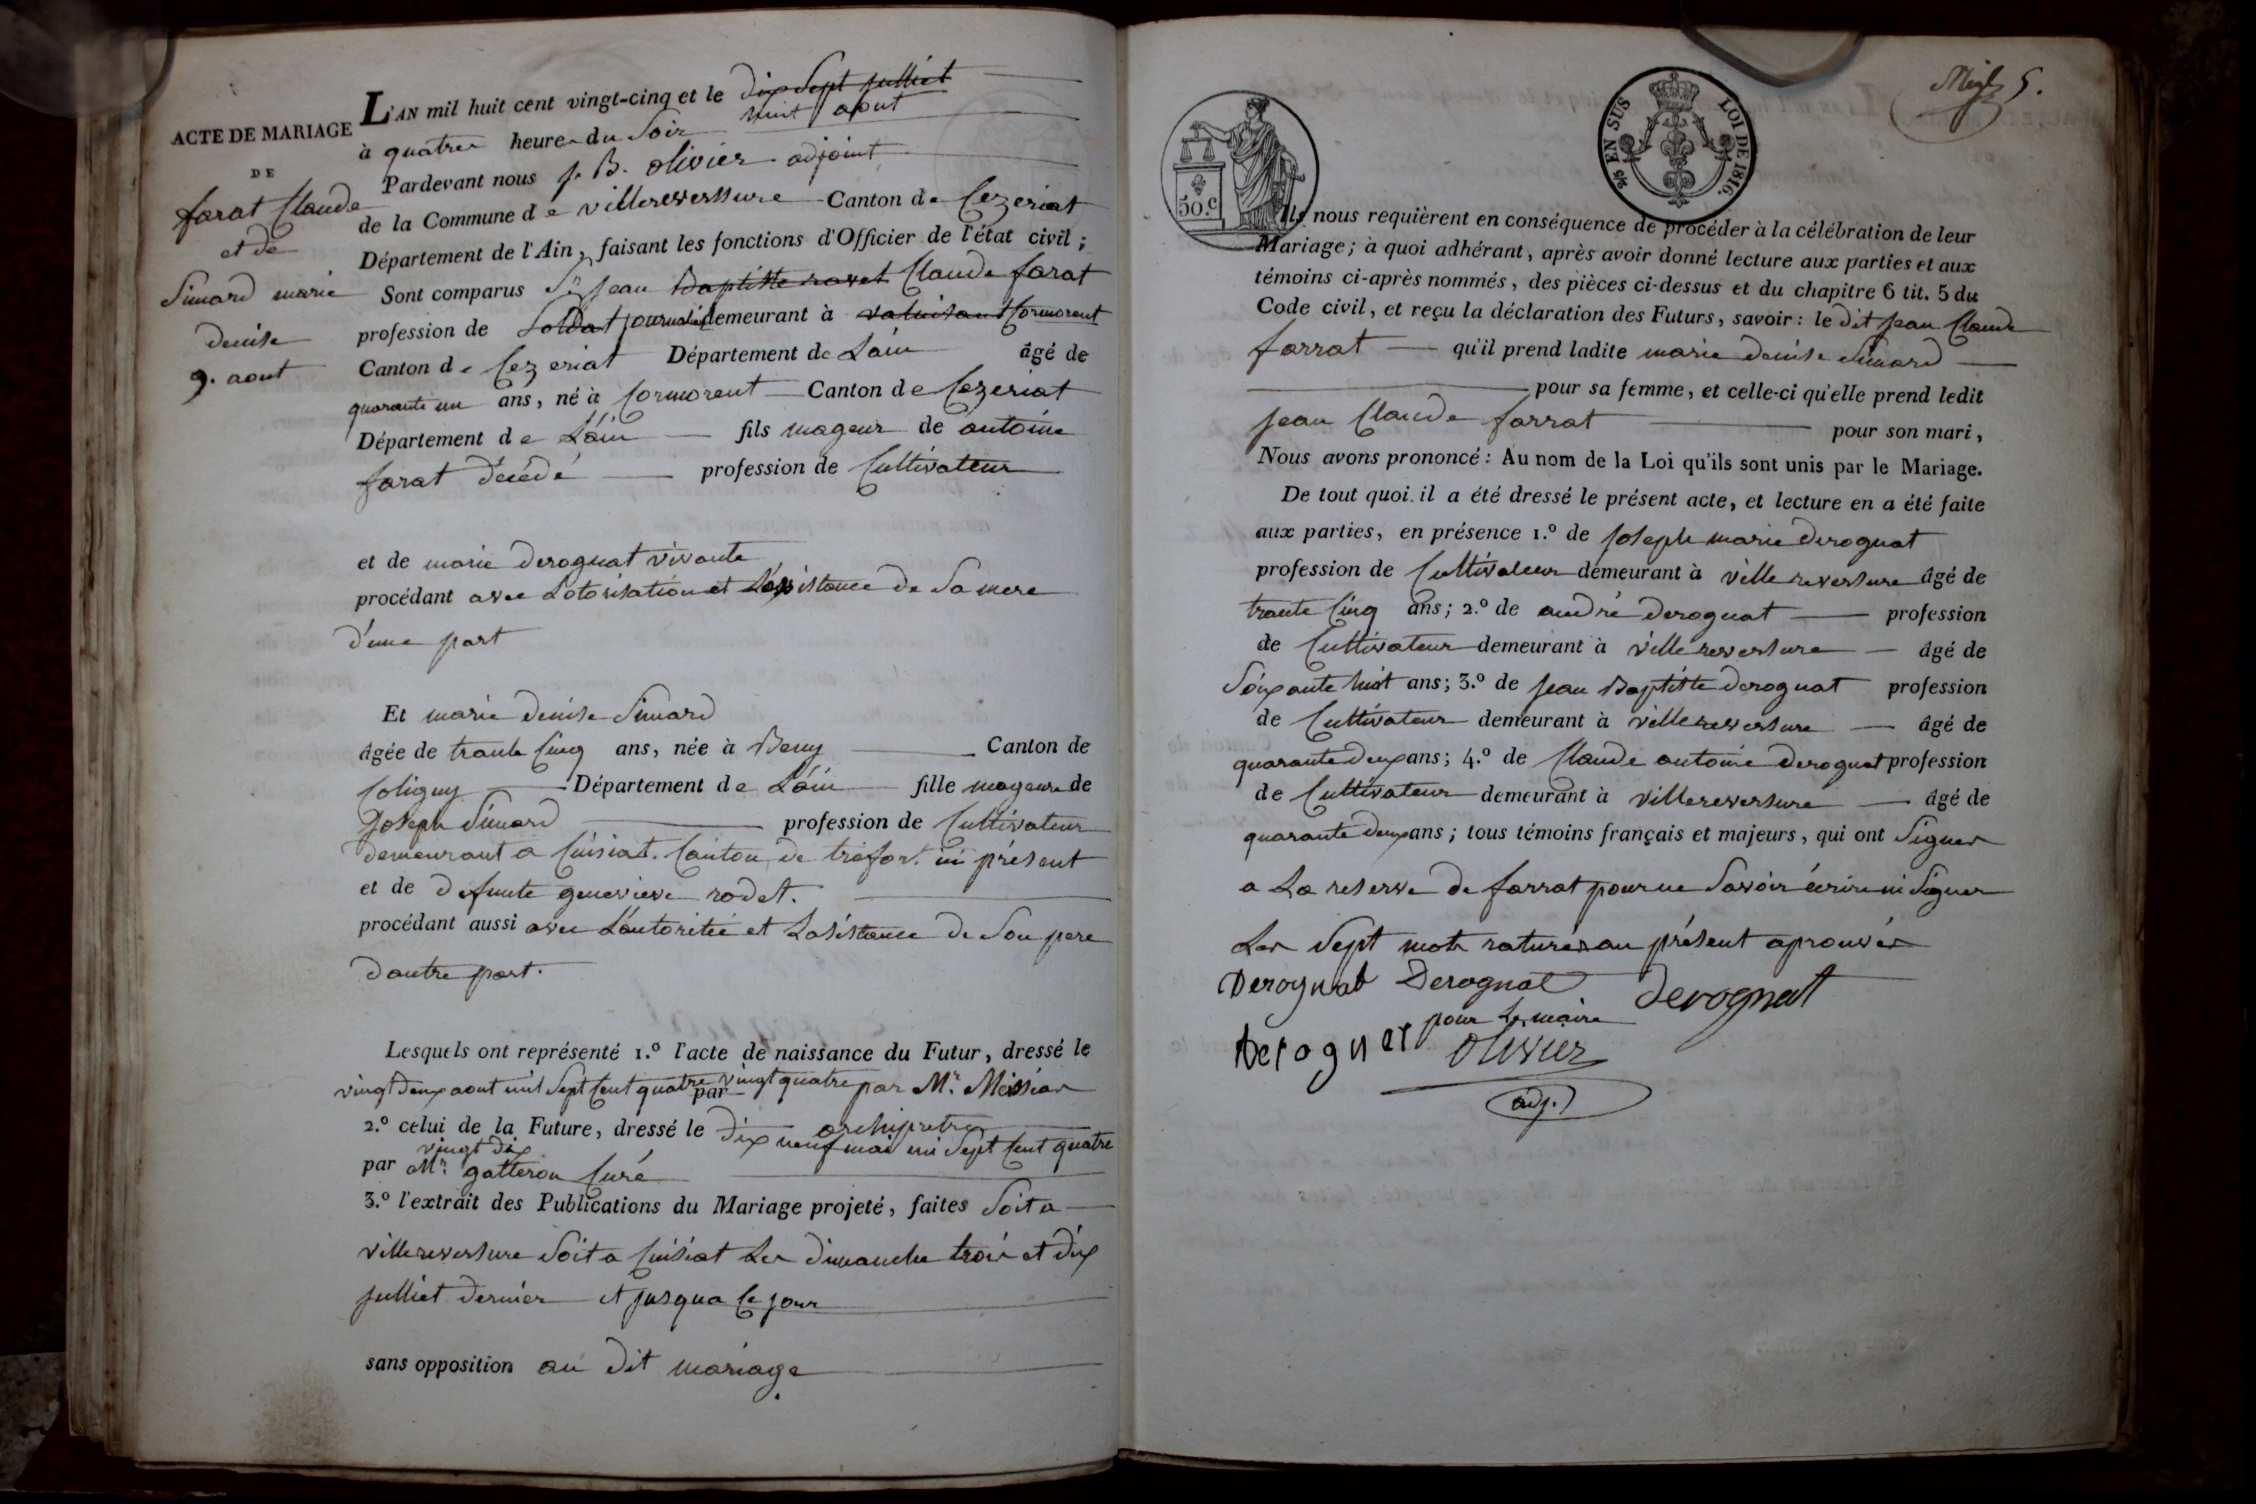 ACTE DE MARIAGE
DE
farat Claude
et de
Simard marie
denise
9. aout
L'AN mil huit cent vingt-cinq et le dix sept julliet
huit aout
à quatre heure du Soir
Pardevant nous j. B. olivier adjoint
de la Commune de villereverssure Canton de Cezeriat
Département de l'Ain, faisant les fonctions d'Officier de l'état civil ;
Sont comparus Sr jean baptiste ravet Claude farat
profession de Soldat journalier demeurant à Cormorent
Canton de Cezeriat Département de Lain âgé de
quarante un ans, né à Cormorent Canton de Cezeriat
Département de Lain fils mageur de antoine
farat décédé profession de Cultivateur
et de marie derognat vivante
procédant avec Lotorisation et Lassistance de Sa mere
d'une part
Et marie denise Simard
âgée de trante Cinq ans, née à Beny Canton de
Coligny Département de Lain fille mageure de
Joseph Simard profession de Cultivateur
demeurant a Cuisiat. Canton de trefort ici présent
et de defunte genevieve rodet.
procédant aussi avec Lautoritée et Lasistance de Son pere
dautre part.
Lesquels ont représenté 1.º l'acte de naissance du Futur, dressé le
vingt deux aout mil Sept Cent quatre vingt quatre par Mr. Messiar
par
archipretre
2.º celui de la Future, dressé le dix neuf mai mil Sept Cent quatre
vingt dix
par Mr. gatteron Curé
3.º l'extrait des Publications du Mariage projeté, faites Soit a
villereversure Soit a Cuisiat Les dimanche trois et dix
julliet dernier et jusqua Ce jour
sans opposition au dit mariage
5.
50.c
2/5 EN SUS
LOI DE 1816.
Ils nous requièrent en conséquence de procéder à la célébration de leur
Mariage ; à quoi adhérant, après avoir donné lecture aux parties et aux
témoins ci-après nommés, des pièces ci-dessus et du chapitre 6 tit. 5 du
Code civil, et reçu la déclaration des Futurs, savoir : le dit jean Claude
farrat qu'il prend ladite marie denise Simard
pour sa femme, et celle-ci qu'elle prend ledit
jean Claude farrat pour son mari,
Nous avons prononcé : Au nom de la Loi qu'ils sont unis par le Mariage.
De tout quoi il a été dressé le présent acte, et lecture en a été faite
aux parties, en présence 1.º de joseph marie derognat
profession de Cultivateur demeurant à ville reversure âgé de
trante Cinq ans ; 2.º de andré derognat profession
de Cultivateur demeurant à ville reversure âgé de
Soixante huit ans ; 3.º de jean Baptiste derognat profession
de Cultivateur demeurant à villereversure âgé de
quarante deux ans ; 4.º de Claude antoine derognat profession
de Cultivateur demeurant à villereversure âgé de
quarante deux ans ; tous témoins français et majeurs, qui ont Signer
a La reserve de farrat pour ne Savoir écrire ni Signer
Les Sept mots raturés au présent aprouvés
Derognat Derognat derognat
pour Le maire
derognat Olivier
adj.